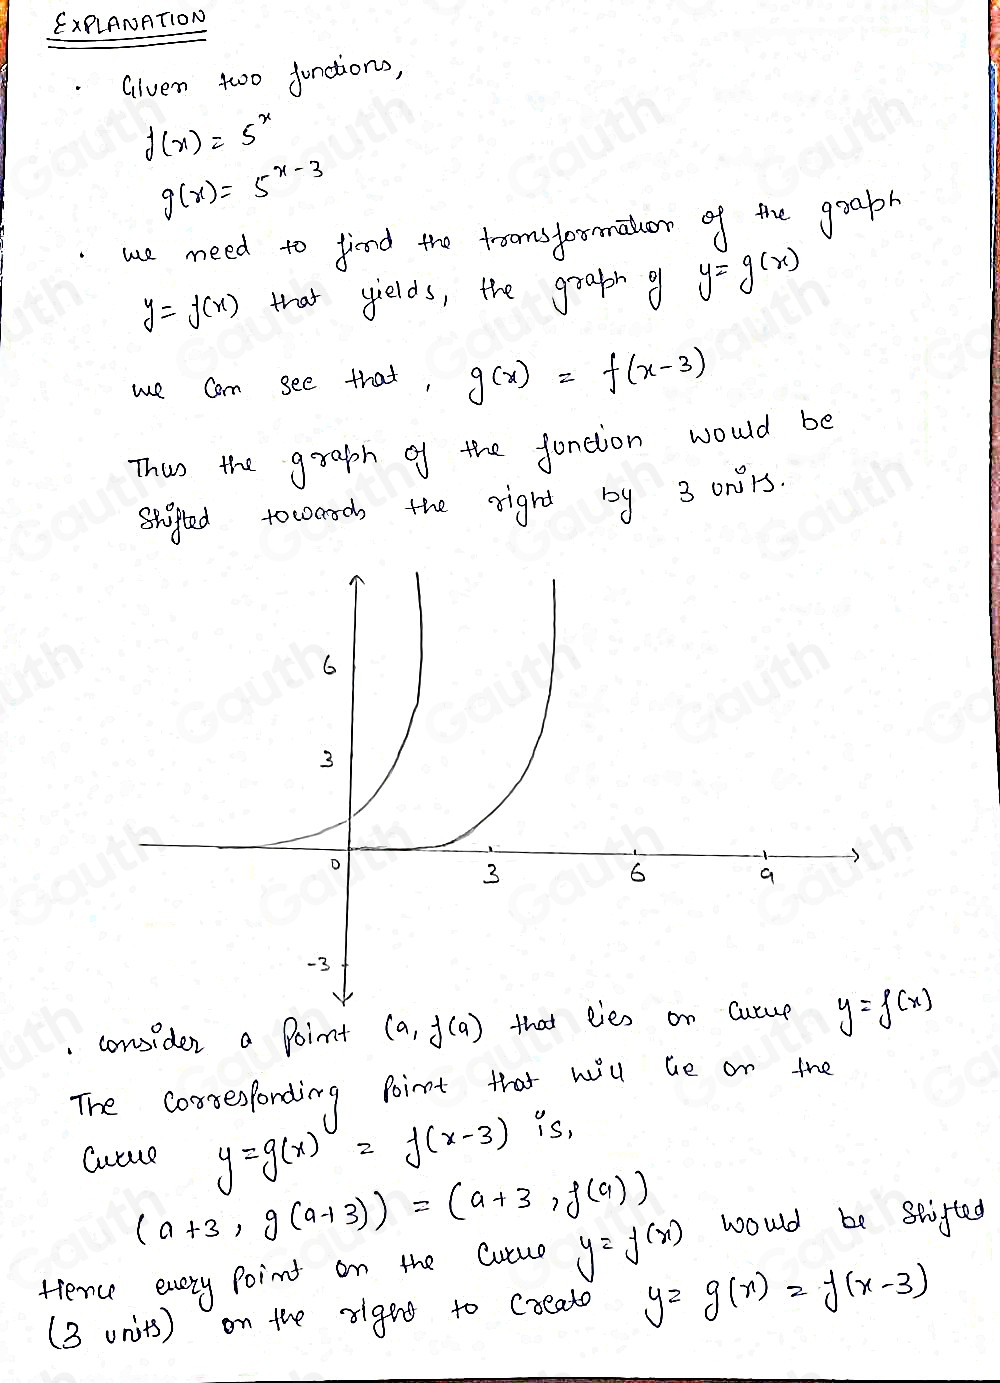 EXPLANATION
. Given two functions,
f(x) = 5^x
g(x) = 5^x-3
. we need to find the transformation of the graph
y = f(x) that yields, the graph of y = g(x)
we can see that, g(x) = f(x-3)
Thus the graph of the function would be
shifted towards the right by 3 units.
6
3
0
3 6 9
-3
. consider a point (a, f(a) that lies on curve y = f(x)
The corresponding point that will lie on the
curve y = g(x) = f(x-3) is,
(a+3, g(a+3)) = (a+3, f(a))
Hence every point on the curve y = f(x) would be shifted
(3 units) on the right to create y = g(x) = f(x-3)
Gauth